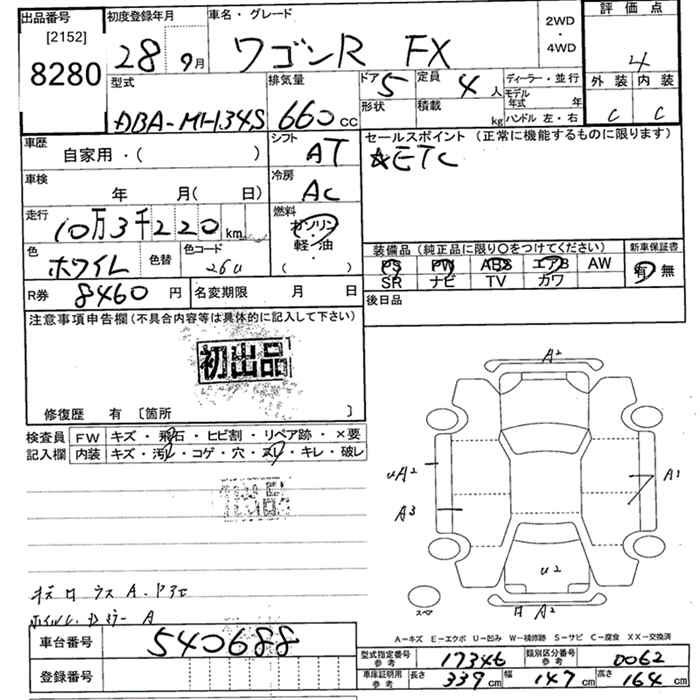 出品番号 初度登録年月 車名・グレード 2WD・4WD 評価点
[2152]
8280 28 9月 ワゴンR FX 4
型式 排気量 ドア 5 定員 4人 ディーラー・並行 外装 内装
DBA-MH34S 660cc 形状 積載 kg モデル年式 年 C C
ハンドル 左・右
車歴 自家用・( ) シフト AT セールスポイント (正常に機能するものに限ります)
☆ETC
車検 年 月( 日) 冷房 AC
走行 10万3千220km 燃料 ガソリン
軽・油
( )
色 ホワイト 色替 色コード 26U
装備品 (純正品に限り○をつけてください) 新車保証書
PS PW ABS エアB AW 有・無
SR ナビ TV カワ
R券 8460円 名変期限 月 日 後日品
注意事項申告欄 (不具合内容等は具体的に記入して下さい)
初出品
修復歴 有 〔箇所 〕
検査員 FW キズ・飛石・ヒビ割・リペア跡・×要
記入欄 内装 キズ・汚れ・コゲ・穴・スレ・キレ・破レ
A2
UA2 A1
A3
U2
スペア A2
A-キズ E-エクボ U-凹み W-補修跡 S-サビ C-腐食 XX-交換済
車台番号 540688
登録番号
型式指定番号 参考 17346 類別区分番号 参考 0062
車庫証明用 参考 長さ 339cm 幅 147cm 高さ 164cm